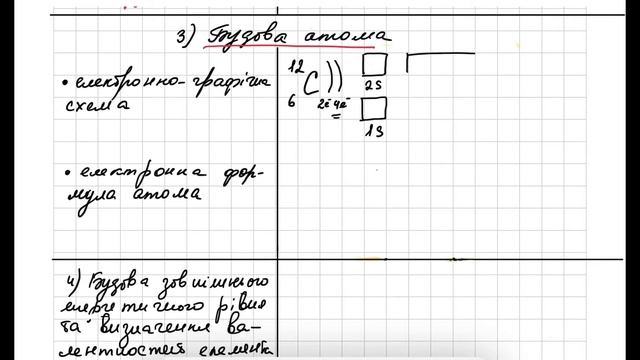 3) Будова атома
• електронно-графічна
схема
12
6 C ))
2ē 4ē
2s
1s
• електронна фор-
мула атома
4) Будова зовнішнього
енергетичного рівня
та визначення ва-
лентностей елемента